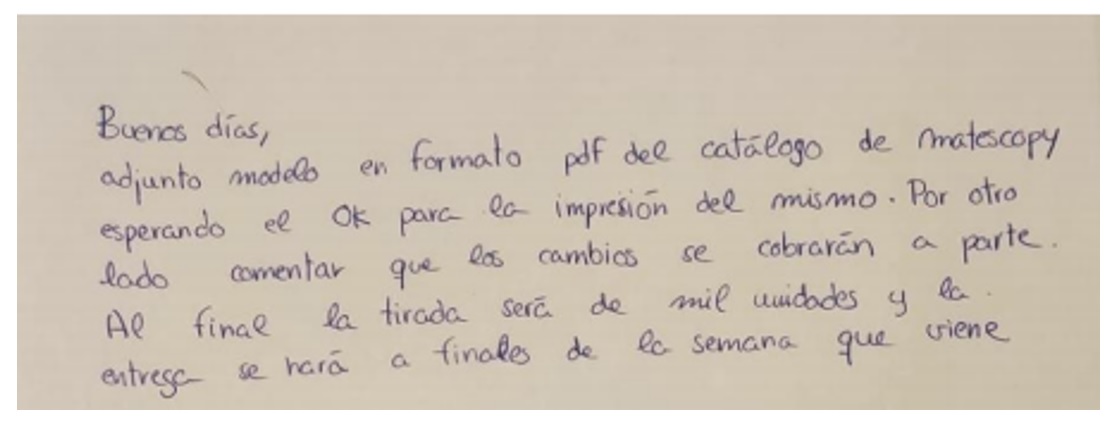 Buenos días,
adjunto modelo en formato pdf del catálogo de matescopy
esperando el Ok para la impresión del mismo. Por otro
lado comentar que los cambios se cobrarán a parte.
Al final la tirada será de mil unidades y la
entrega se hará a finales de la semana que viene